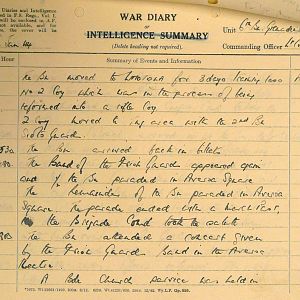 WAR DIARY
of
INTELLIGENCE SUMMARY
(Delete heading not required).
Diaries and Intelligence
in F.S. Regs., Vol. I.
will be enclosed in A.F.
not available, and for
the cover will be
Unit
Commanding Officer
Hour
Summary of Events and Information
The Bn moved to for 3 days training less
2 Coy which was in the process of being
reformed into a rifle Coy
2 Coy moved to area with the 2nd Bn
Scots Guards.
The Bn arrived back in billets
The Band of the Irish Guards appeared again
and the Bn paraded in Aversa Square
The remainder of the Bn paraded in Aversa
Square. The parade ended with a march past,
the Brigade Comd took the salute.
The Bn attended a concert given
by the Irish Guards Band in the Aversa
Theatre.
A Bde Church service was held in